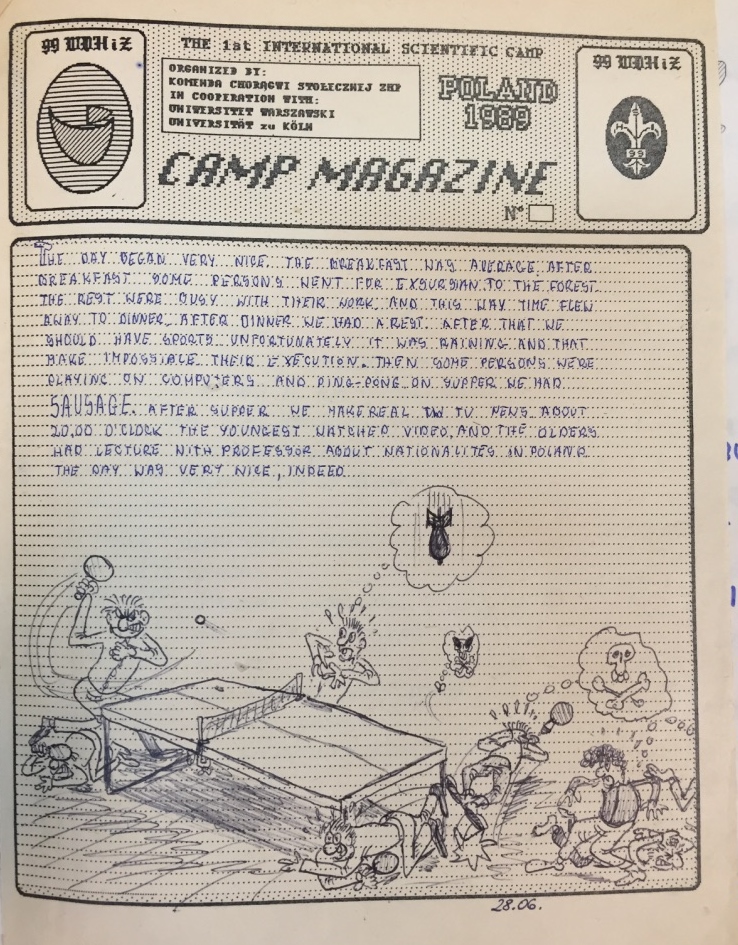 99 WDHiZ
THE 1st INTERNATIONAL SCIENTIFIC CAMP
99 WDHiZ
ORGANIZED BY:
KOMENDA CHORĄGWI STOŁECZNEJ ZHP
IN COOPERATION WITH:
UNIWERSITET WARSZAWSKI
UNIVERSITÄT zu KÖLN
POLAND
1989
99
CAMP MAGAZINE
N°
THE DAY BEGAN VERY NICE. THE BREAKFAST WAS AVERAGE. AFTER
BREAKFAST SOME PERSONS WENT FOR EXSURSIAN TO THE FOREST.
THE REST WERE BUSY WITH THEIR WORK. AND THIS WAY TIME FLEW
AWAY TO DINNER. AFTER DINNER WE HAD A REST. AFTER THAT WE
SHOULD HAVE SPORTS. UNFORTUNATELY IT WAS RAINING AND THAT
MAKE IMPOSSIBLE THEIR EXECUTION. THEN SOME PERSONS WERE
PLAYING ON COMPUTERS AND PING-PONG. ON SUPPER WE HAD
SAUSAGE. AFTER SUPPER WE MAKE REAL TV NEWS. ABOUT
20.00 O'CLOCK THE YOUNGEST WATCHED VIDEO, AND THE OLDERS
HAD LECTURE WITH PROFESSOR ABOUT NATIONALITES IN POLAND.
THE DAY WAS VERY NICE, INDEED.
28.06.